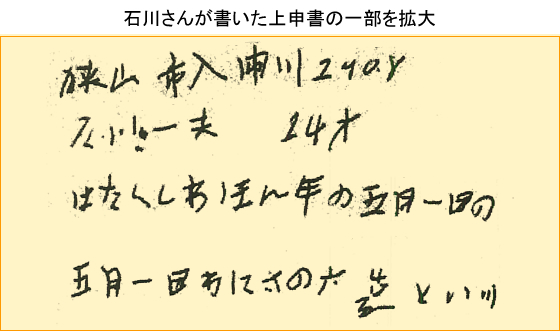 石川さんが書いた上申書の一部を拡大
狭山市入間川2908
石川一夫 24才
はたくしわほん年の五月一日の
五月一日わにさの六造といツ